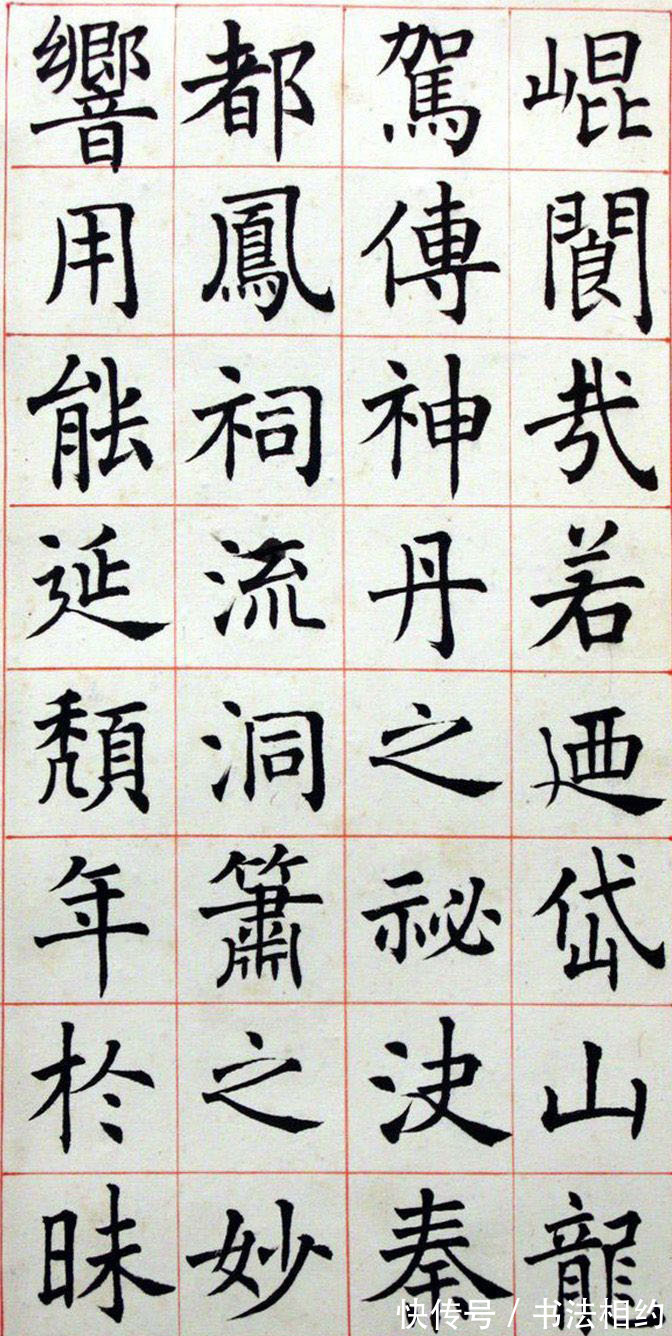 崐閬㢤若迺岱山龍
駕傳神丹之祕決奉
都鳳祠流洞簫之妙
響用能延頹年於昧
快传号 / 书法相约